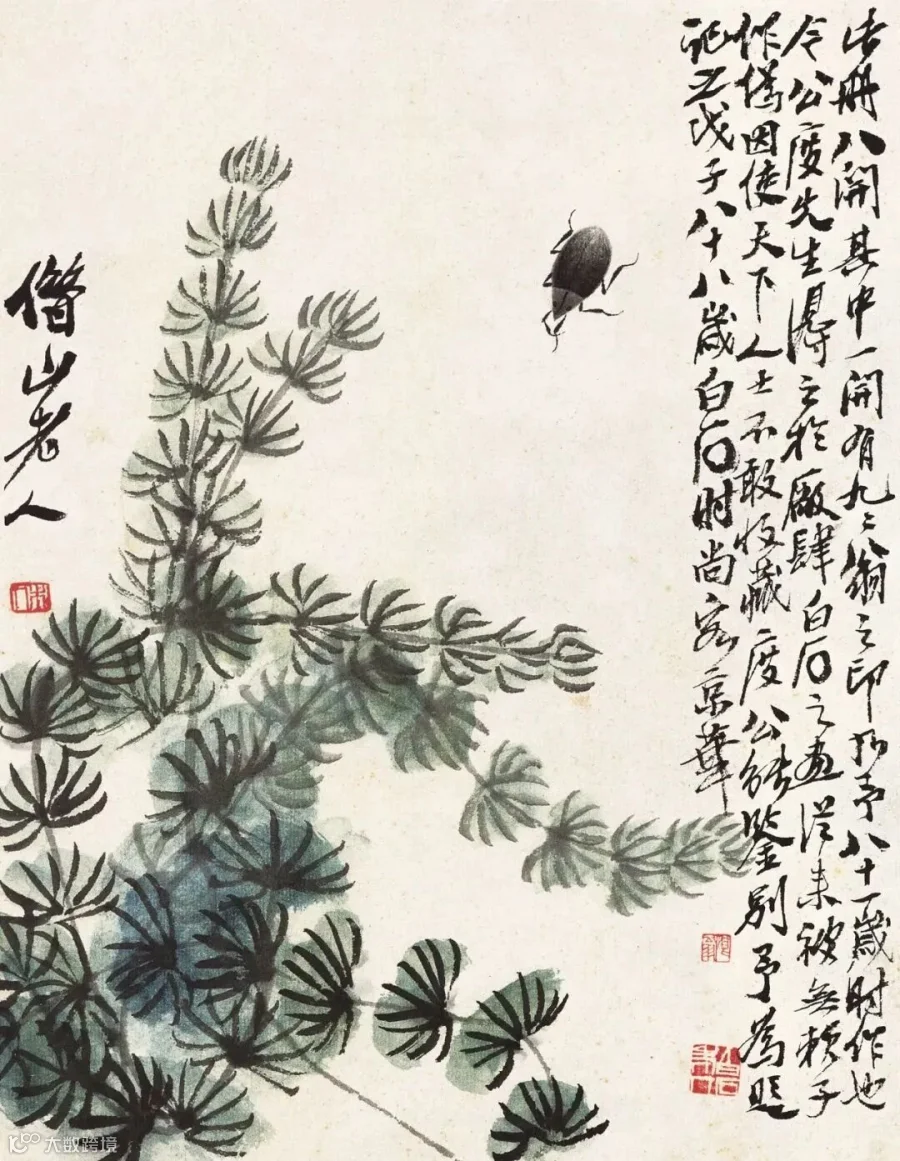 此册八开其中一开有九二翁之印乃予八十一岁时作也
今公度先生得之於厰肆白石之画從来被無赖子
作偽因使天下人士不敢收藏度公能鉴别予为题
记之戊子八十八岁白石时尚客京華
借山老人
大数跨境